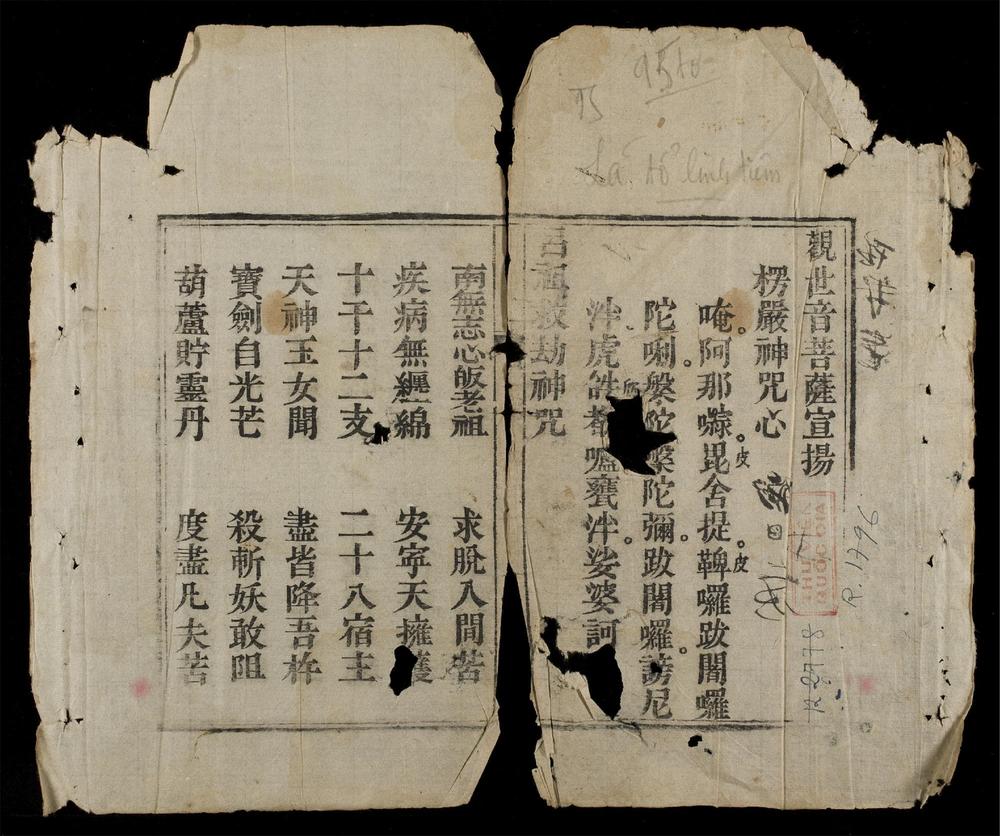 95 to
Lã tổ linh tiêm
觀世音菩薩宣揚
楞嚴神咒心
唵阿那㗚毘舍提鞞囉跋闍囉
皮
皮
陀唎槃陀槃陀彌跋闍囉謗尼
泮虎𤙖都嚧甕泮娑婆訶
呂祖救劫神咒
THU VIEN
QUOC GIA
R.1796
R.2778
南無志心皈老祖 求脫入間苦
疾病無纒綿 安寧天擁護
十干十二支 二十八宿主
天神玉女聞 盡皆降吾杵
寶劍自光芒 殺斬妖敢阻
葫蘆貯靈丹 度盡凡夫苦